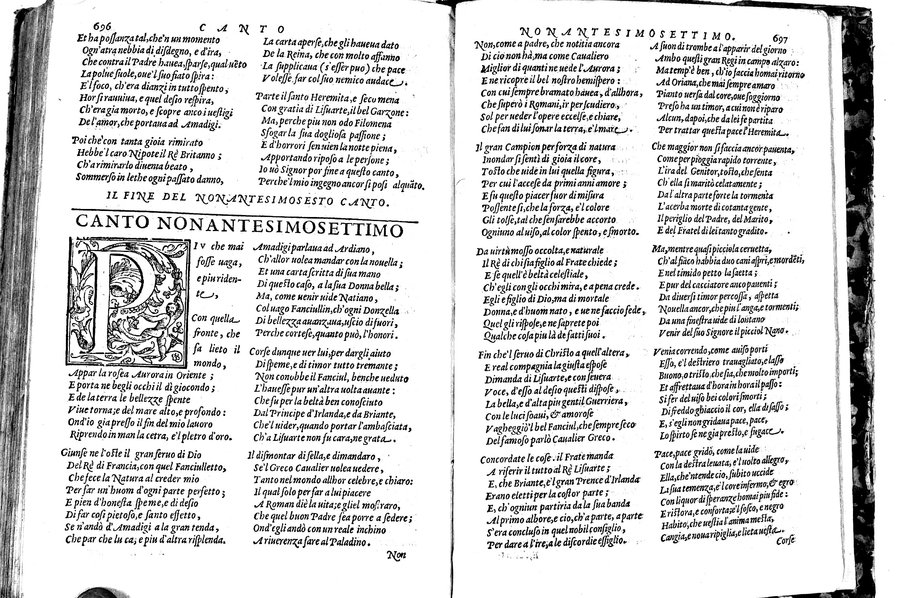 696 CANTO
Et ha possanza tal, che'n un momento
Ogn'atra nebbia di disdegno, e d'ira,
Che contra il Padre havea, sparse, qual vẽto
La polue suole, oue'l suo fiato spira:
E'l foco, ch'era dianzi in tutto spento,
Hor si rauuiua, e quel desio respira,
Ch'era gia morto, e scopre anco i uestigi
De l'amor, che portaua ad Amadigi.
Poi che con tanta gioia rimirato
Hebbe'l caro Nipote il Rè Britanno;
Ch'a rimirarlo diuenta beato,
Sommerso in lethe ogni passato danno,
La carta aperse, che gli haueua dato
De la Reina, che con molto affanno
La supplicaua (s'esser puo) che pace
Volesse far col suo nemico audace.
Parte il santo Heremita, e seco mena
Con gratia di Lisuarte, il bel Garzone:
Ma, perche piu non odo Filomena
Sfogar la sua dogliosa passione;
E d'horrori sen uien la notte piena,
Apportando riposo a le persone;
Io uò Signor por fine a questo canto,
Perche'l mio ingegno ancor si posi alquãto.
IL FINE DEL NONANTESIMOSESTO CANTO.
CANTO NONANTESIMOSETTIMO
PIV che mai
fosse uaga,
e piu riden-
te,
Con quella
fronte, che
fa lieto il
mondo,
Appar la rosea Aurora in Oriente;
E porta ne begli occhi il dì giocondo;
E de la terra le bellezze spente
Viue torna; e del mare alto, e profondo:
Ond'io gia presso il fin del mio lauoro
Riprendo in man la cetra, e'l pletro d'oro.
Giunse ne l'oste il gran seruo di Dio
Del Rè di Francia, con quel Fanciulletto,
Che fece la Natura al creder mio
Per far un'huom d'ogni parte perfetto;
E pien d'honesta speme, e di desio
Di far cosi pietoso, e santo effetto,
Se n'andò d'Amadigi a la gran tenda,
Che par che lu ca, e piu d'altra risplenda.
Amadigi parlaua ad Ardiano,
Ch'allor uolea mandar con la nouella;
Et una carta scritta di sua mano
Di questo caso, a la sua Donna bella;
Ma, come uenir uide Natiano,
Col uago Fanciullin, ch'ogni Donzella
Di bellezza auanzaua, uscio di fuori,
Perche cortese, quanto può, l'honori.
Corse dunque uer lui, per dargli aiuto
Di speme, e di timor tutto tremante;
Non conobbe il Fanciul, benche ueduto
L'hauesse pur un'altra uolta auante:
Che fu per la beltà ben conosciuto
Dal Principe d'Irlanda, e da Briante,
Che'l uider, quando portar l'ambasciata,
Ch'a Lisuarte non fu cara, ne grata.
Il dismontar di sella, e dimandaro,
Se'l Greco Caualier uolea uedere,
Tanto nel mondo allhor celebre, e chiaro:
Il qual solo per far a lui piacere
A Roman diè la uita; e gliel mostraro,
Che quel buon Padre fea porre a sedere;
Ond'egli andò con un reale inchino
A riuerenza fare al Paladino.
Non
NONANTESIMOSETTIMO. 697
Non, come a padre, che notitia ancora
Di ciò non hà, ma come Caualiero
Miglior di quanti ne uede l'Aurora;
E ne ricopre il bel nostro hemispero:
Con cui sempre bramato hauea, d'allhora,
Che superò i Romani, ir per scudiero,
Sol per ueder l'opere eccelse, e chiare,
Che fan di lui sonar la terra, e'l mare.
Il gran Campion per forza di natura
Inondar si sentì di gioia il core,
Tosto che uide in lui quella figura,
Per cui l'accese da primi anni amore;
E fu questo piacer fuor di misura
Possente sì, che la forza, e'l colore
Gli tolse, tal che sensarebbe accorto
Ogniuno al uiso, al color spento, e smorto.
Da uirtù mosso occolta, e naturale
Il Rè di chi sia figlio al Frate chiede;
E se quell'è beltà celestiale,
Ch'egli con gli occhi mira, e a pena crede.
Egli è figlio di Dio, ma di mortale
Donna, e d'huom nato, e ue ne faccio fede,
Quel gli rispose, e ne saprete poi
Qualche cosa piu là de fatti suoi.
Fin che'l seruo di Christo a quell'altera,
E real compagnia la giusta espose
Dimanda di Lisuarte, e con seuera
Voce, d'esso al desio questi oppose,
La bella, e d'alta piu gentil Guerriera,
Con le luci soaui, & amorose
Vagheggiò'l bel Fanciul, che sempre seco
Del famoso parlò Caualier Greco.
Concordate le cose. il Frate manda
A riferir il tutto al Rè Lisuarte;
E, che Briante, è'l gran Prence d'Irlanda
Erano eletti per la costor parte;
E, ch'ogniun partiria da la sua banda
Al primo albore, e cio, ch'a parte, a parte
S'era concluso in quel nobil consiglio,
Per dare a l'ire, a le discordie essiglio.
A suon di trombe a l'apparir del giorno
Ambo questi gran Regi in campo alzaro:
Ma temp'è ben, ch'io faccia homai ritorno
Ad Oriana, che mai sempre amaro
Pianto uersa dal core, oue soggiorno
Preso ha un timor, a cui non è riparo
Alcun, dapoi, che da lei fe partita
Per trattar questa pace l'Heremita.
Che maggior non si faccia ancor pauenta,
Come per pioggia rapido torrente,
L'ira del Genitor, tosto, che senta
Ch'ella si maritò celatamente;
Da l'altra parte forte la tormenta
L'acerba morte di cotanta gente,
Il periglio del Padre, del Marito,
E del Fratel di lei tanto gradito.
Ma, mentre quasi picciola ceruetta,
Ch'al fiãco habbia duo cani aspri, e mordẽti,
E nel timido petto la saetta;
E pur del cacciator anco pauenti;
Da diuersi timor percossa, aspetta
Nouella ancor, che piu l'anga, e tormenti;
Da una finestra uide di lontano
Venir del suo Signore il picciol Nano.
Venia correndo, come auiso porti
Esso, e'l destriero trauagliato, e lasso
Buono, o tristo, che sia, che molto importi;
Et affrettaua d'hora in hora il passo:
Si fer del uiso bei colori smorti;
Di freddo ghiaccio il cor, ella di sasso;
E, s'egli non gridaua pace, pace,
Lo spirto se ne gia presto, e fugace.
Pace, pace gridò, come la uide
Con la destra leuata, e'l uolto allegro,
Ella, che'ntende ciò, subito uccide
La sua temenza, e'l core infermo, & egro
Con liquor di speranze homai piu fide:
E ristora, e conforta; e'l fosco, e negro
Habito, che uestia l'anima mesta,
Cangia, e noua ripiglia, e lieta uesta.
Corse